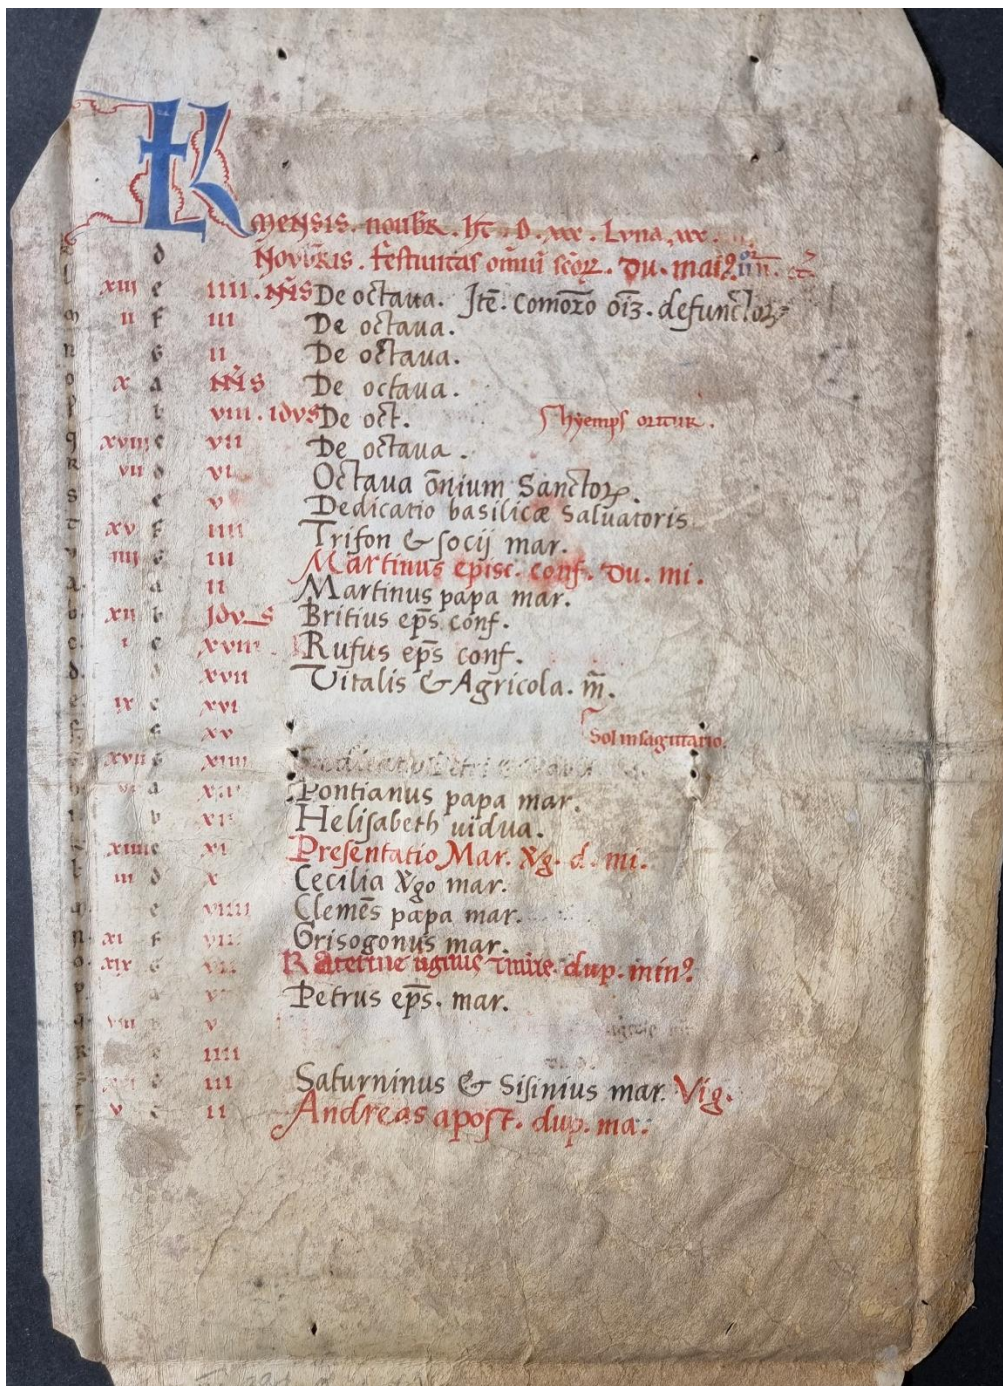 KL
mensis. nouẽbr. ht̃. D. xxx. Luna. xxx.
d Nouẽbris. festiuitas om̃iũ sc̃oꝝ. du. mai9
l xiii e iiii. Nĩs De octaua. Itẽ. comor̃o oĩʒ. defunctoꝝ
m ii f iii De octaua.
n g ii De octaua.
o x a Nĩs De octaua.
p b viii. idus De oct̃. hyemps oritur.
q xviii c vii De octaua.
R vii d vi Octaua õnium Sanctoꝝ.
s e v Dedicatio basilicæ Saluatoris
t xv f iiii Trifon & socij mar.
v iiii g iii Martinus episc. conf. du. mi.
a. a ii Martinus papa mar.
b. xii b Idus Britius ep̃s conf.
c. i c xviii Rufus ep̃s conf.
d. d xvii Vitalis & Agricola. m̃.
e. ix e xvi
f. f xv Sol in sagittario.
xvii g xiiii
a Pontianus papa mar.
i b Helisabeth uidua.
xiiii c xi Presentatio Mar. Vg̃. d. mi.
l iii d x Cecilia Vg̃o mar.
m e viiii Clemẽs papa mar.
n xi f Grisogonus mar.
o. xix g Katerine uirginis dup. min9
p a Petrus ep̃s. mar.
q viii b v
R c iiii
s xvi d iii Saturninus & Sisinius mar. Vig.
t v e ii Andreas apost. dup. ma.